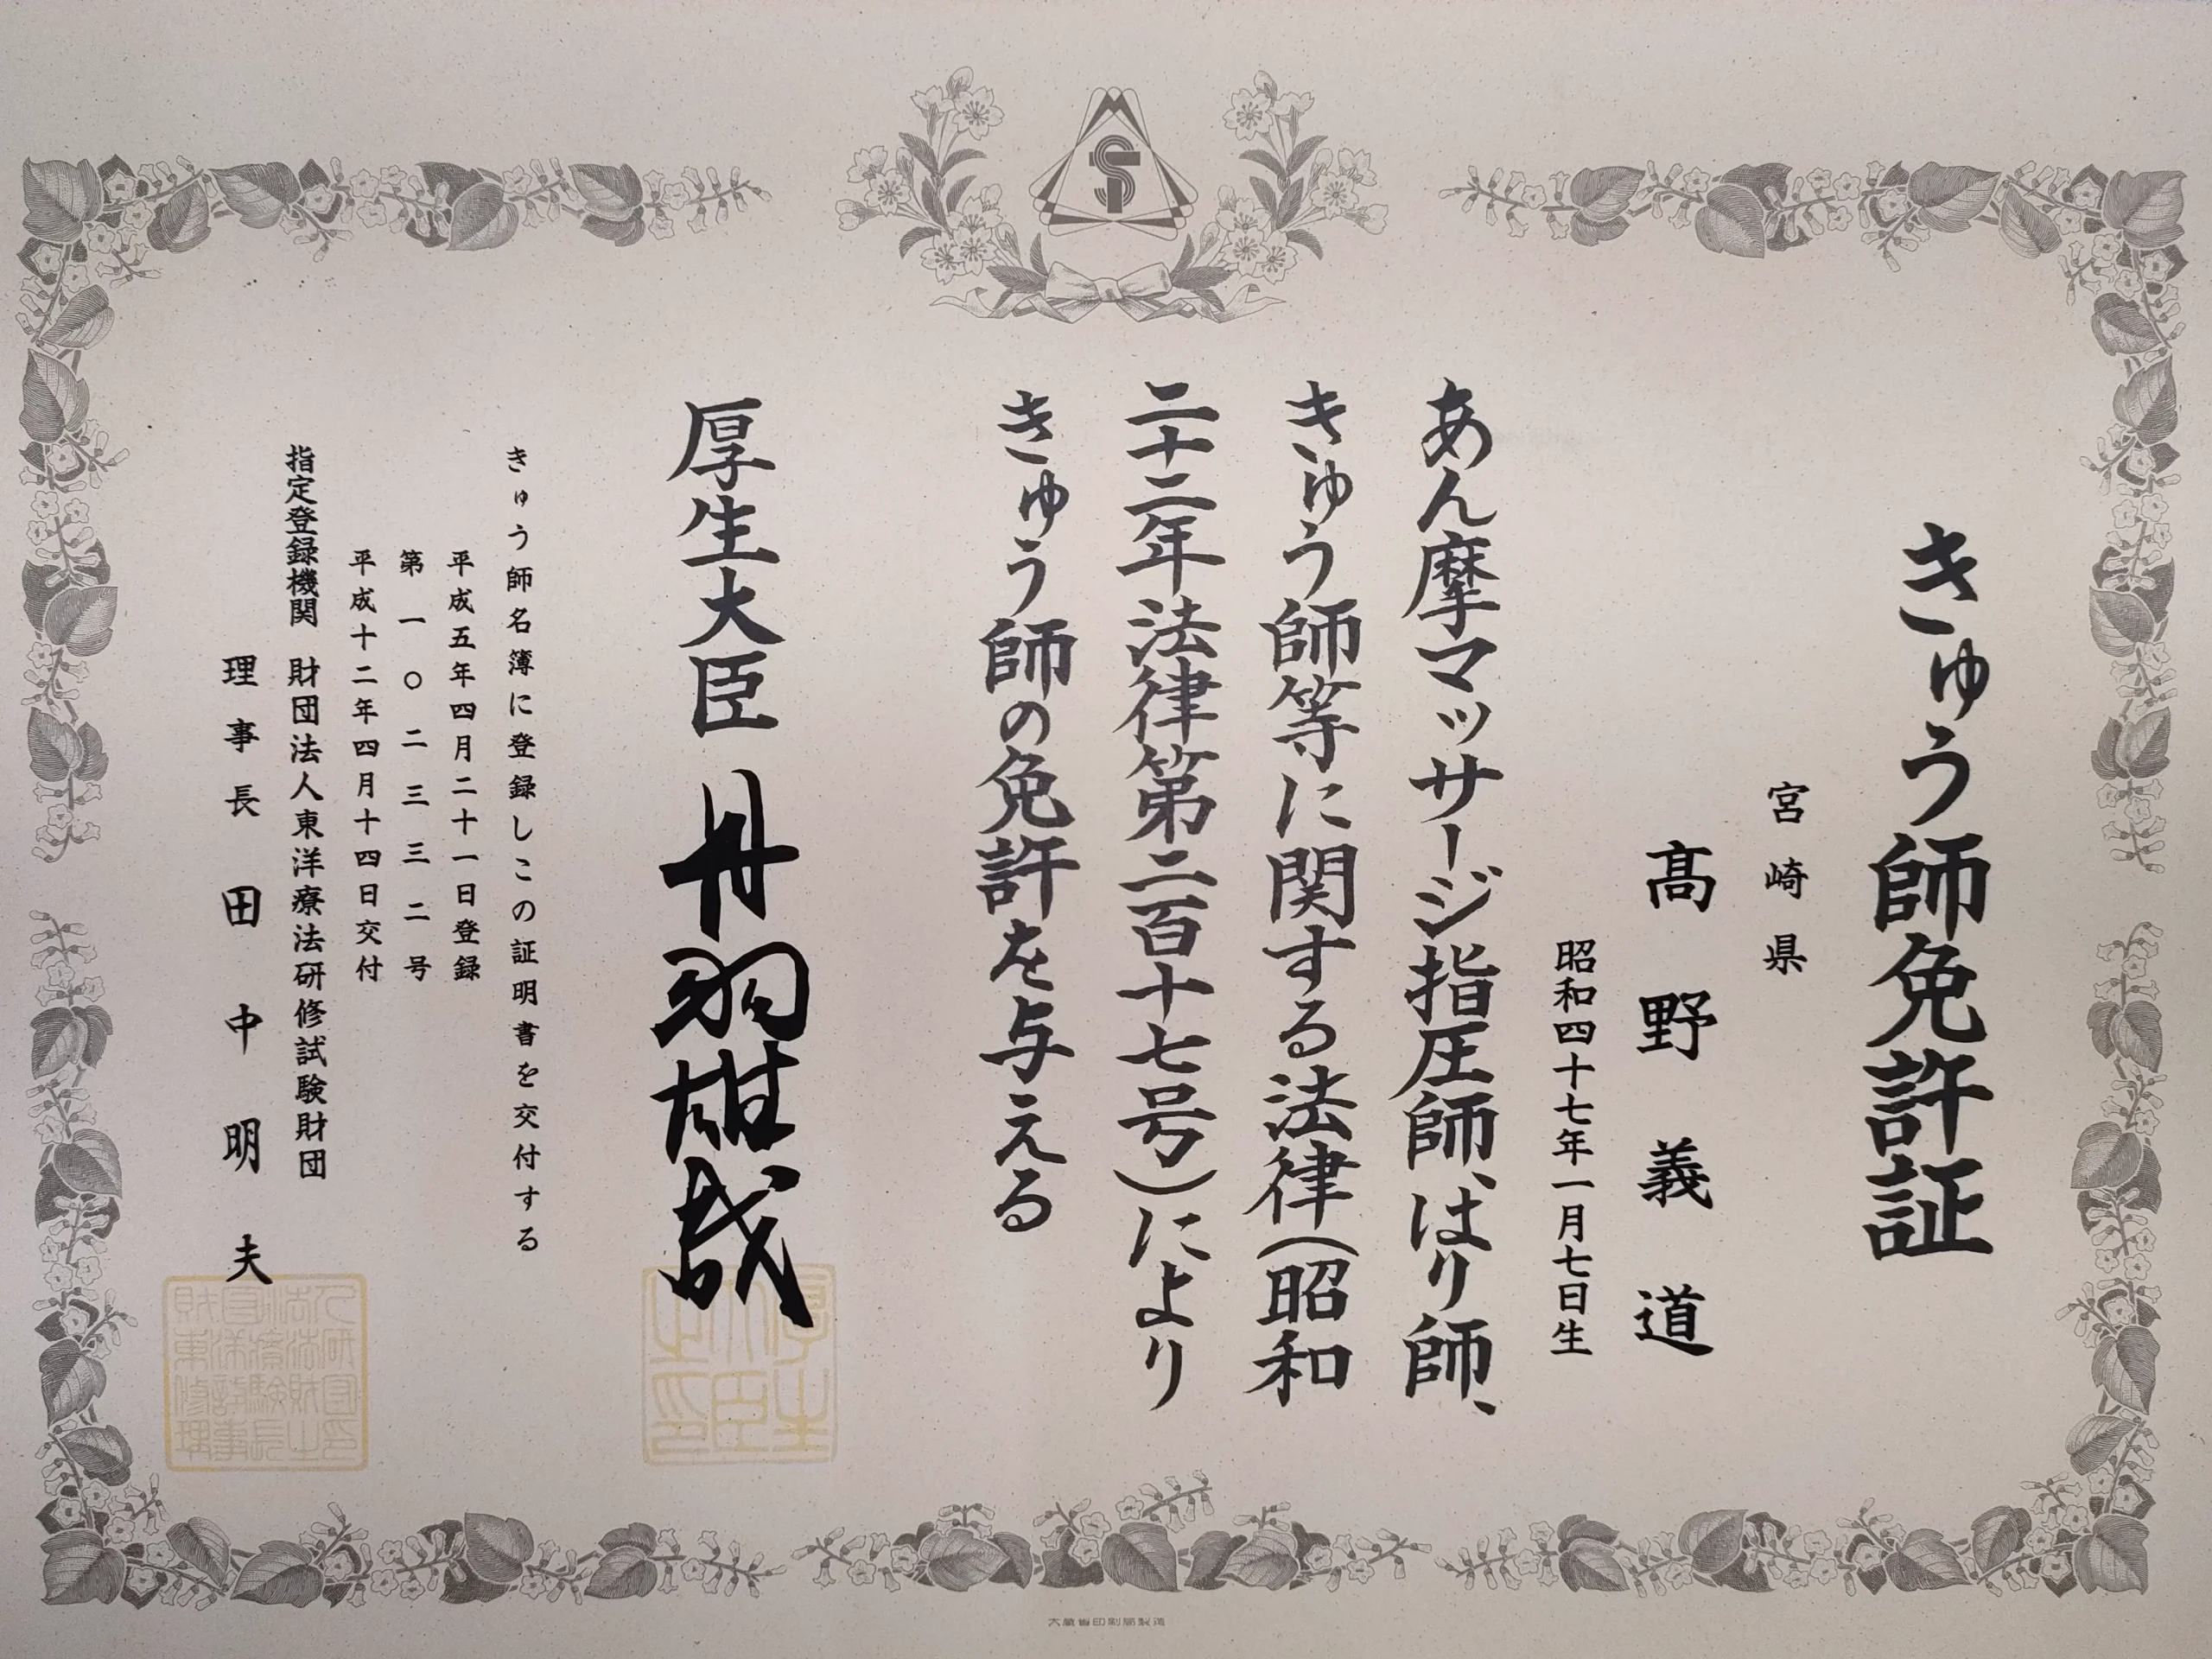 きゅう師免許証
宮崎県
髙野義道
昭和四十七年一月七日生
あん摩マッサージ指圧師、はり師、
きゅう師等に関する法律(昭和
二十二年法律第二百十七号)により
きゅう師の免許を与える
厚生大臣 丹羽雄哉
きゅう師名簿に登録しこの証明書を交付する
平成五年四月二十一日登録
第一〇二三三二号
平成十二年四月十四日交付
指定登録機関 財団法人東洋療法研修試験財団
理事長 田中明夫
大蔵省印刷局製造